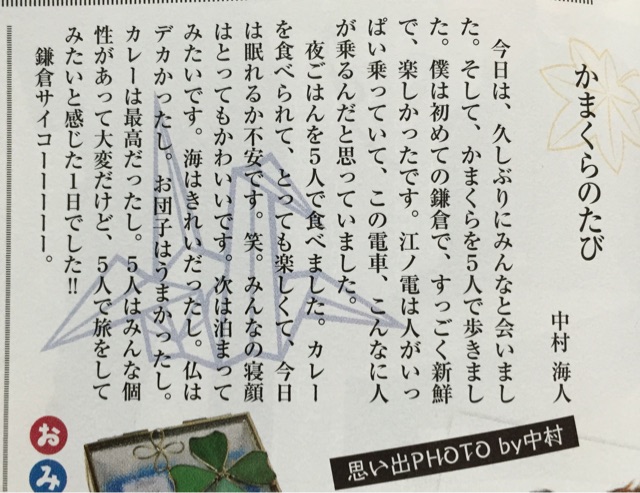 かまくらのたび
中村 海人
今日は、久しぶりにみんなと会いまし
た。そして、かまくらを5人で歩きまし
た。僕は初めての鎌倉で、すっごく新鮮
で、楽しかったです。江ノ電は人がいっ
ぱい乗っていて、この電車、こんなに人
が乗るんだと思っていました。
夜ごはんを5人で食べました。カレー
を食べられて、とっても楽しくて、今日
は眠れるか不安です。笑。みんなの寝顔
はとってもかわいいです。次は泊まって
みたいです。海はきれいだったし。仏は
デカかったし。お団子はうまかったし。
カレーは最高だったし。5人はみんな個
性があって大変だけど、5人で旅をして
みたいと感じた1日でした!!
鎌倉サイコーーーーー。
思い出PHOTO by中村
おみ